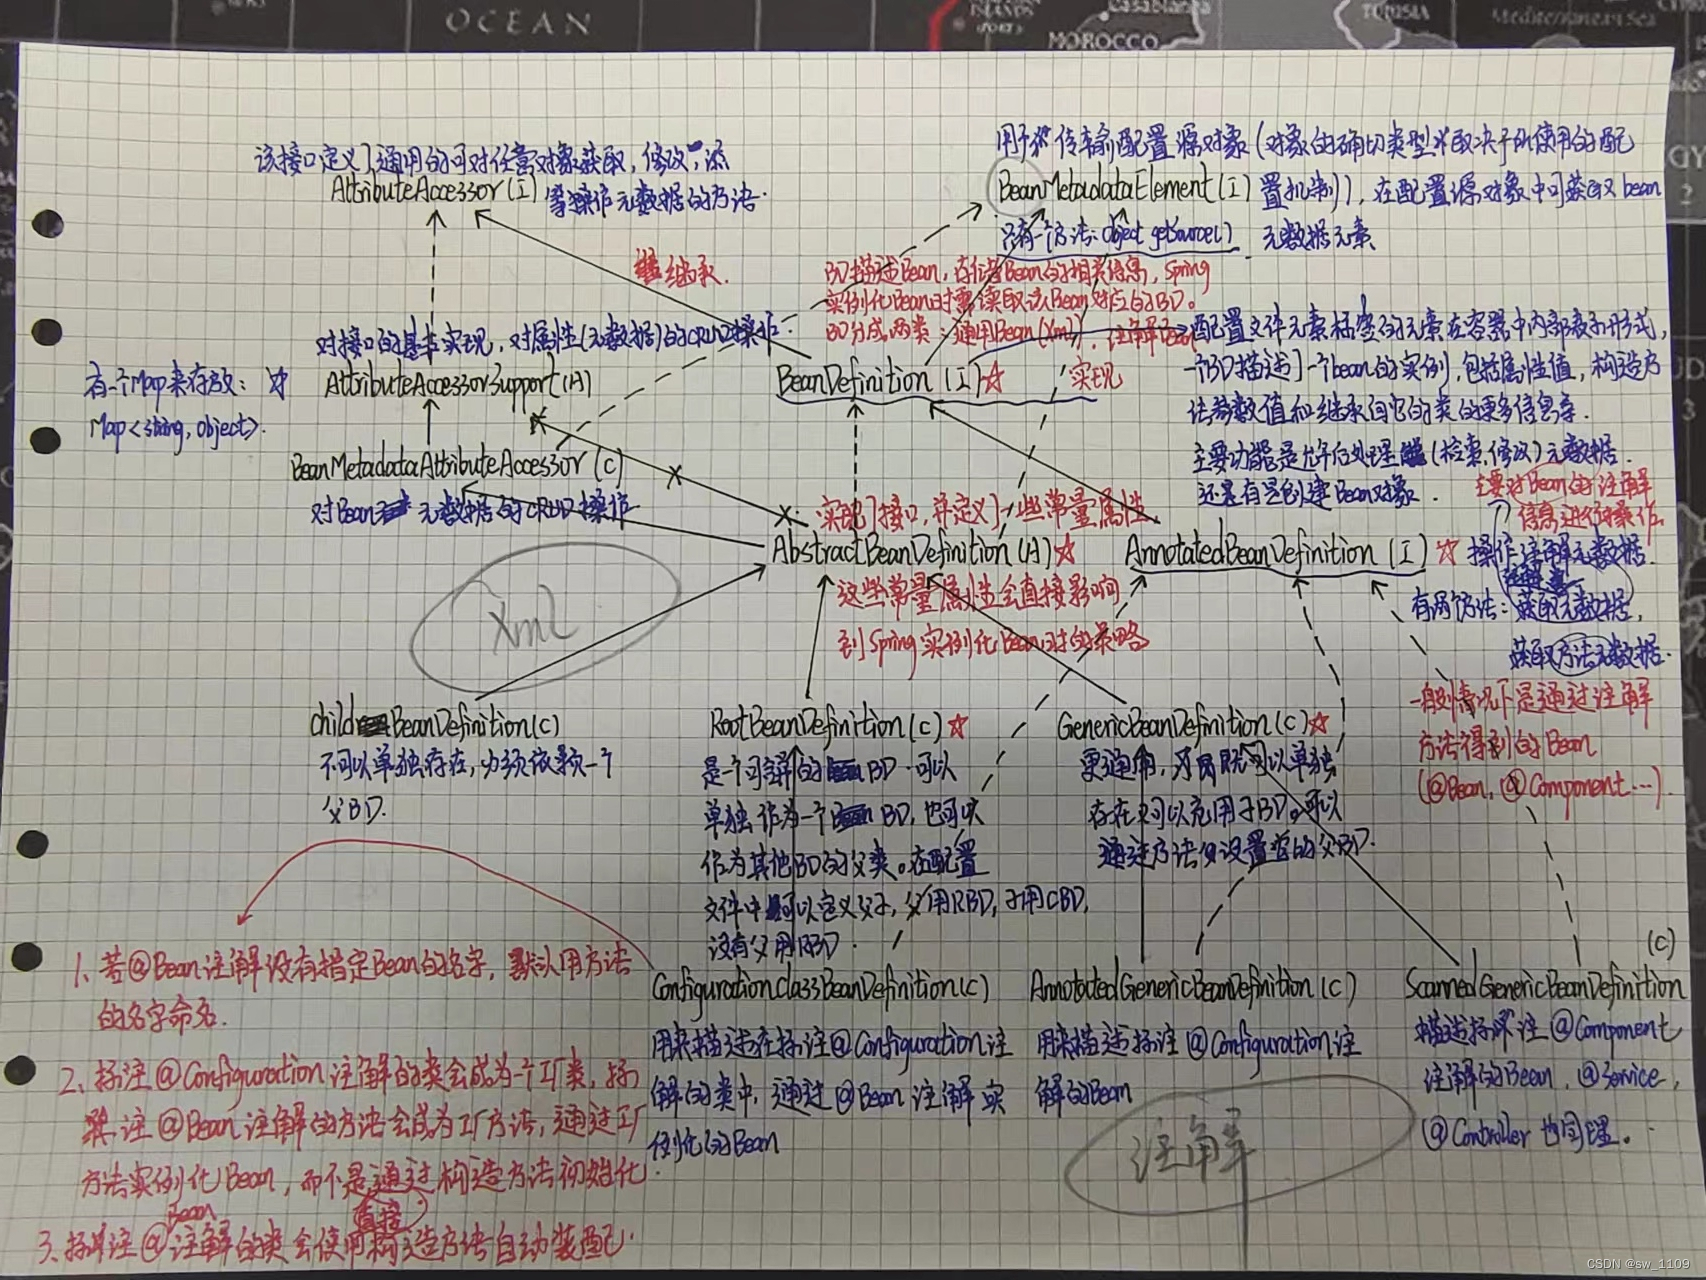 OCEAN
MOROCCO
Casablanca
TUNISIA
Mediterranean Sea
该接口定义了通用的可对任意对象获取，修改，添
AttributeAccessor(I) 等操作元数据的方法.
用于 传输配置源对象(对象的确切类型取决于所使用的配
BeanMetadataElement(I) 置机制)，在配置源对象中可获取bean
只有一个方法: object getSource() 元数据元素
继承.
BD描述Bean, 存储Bean的相关信息, Spring
实例化Bean时需读取该Bean对应的BD。
BD分成两类：通用Bean(Xml), 注解Bean
对接口的基本实现，对属性(元数据)的CRUD操作.
AttributeAccessorSupport(A)
有一个Map来存放：
Map<string, object>.
BeanDefinition (I)☆
实现
配置文件元素标签的元素在容器中内部表示形式,
一个BD描述了一个bean的实例, 包括属性值, 构造方
法参数值和继承自它的类的更多信息等.
主要功能是允许后处理 (检索,修改)元数据.
还有是创建Bean对象.
BeanMetadataAttributeAccessor (C)
对Bean 元数据的CRUD操作
X
X
实现了接口, 并定义了一些常量属性
AbstractBeanDefinition (A)☆
这些常量属性会直接影响
到Spring实例化Bean时的策略
主要对Bean的注解
信息进行 操作.
AnnotatedBeanDefinition (I) ☆ 操作注解元数据.
有两个方法: 获取元数据,
获取方法元数据.
一般 情况下是通过注解
方法得到的Bean
(@Bean, @Component…).
Xml
Child BeanDefinition(C)
不可以单独存在, 必须依赖一个
父BD.
RootBeanDefinition(C)☆
是一个可 的 BD. 可以
单独作为一个 BD, 也可以
作为其他BD的父类。在配置
文件中 可以定义父子, 父用RBD, 子用CBD,
没有父用RBD.
GenericBeanDefinition(C)☆
更通用, 既可以单独
存在又可以 用于BD。可以
通过方法 设置 的父BD.
1、若@Bean注解没有指定Bean的名字, 默认用方法
的名字命名.
2、标注@Configuration注解的类会成为一个工厂类, 标
注@Bean注解的方法会成为工厂方法, 通过工厂
方法实例化Bean, 而不是通过构造方法初始化
Bean 直接
3、标注@ 注解的类会使用构造方法自动装配.
ConfigurationClassBeanDefinition(C)
用来描述在标注@Configuration注
解的类中, 通过@Bean注解实
例化的Bean
AnnotatedGenericBeanDefinition(C)
用来描述标注@Configuration注
解的Bean
注解
(C)
ScannedGenericBeanDefinition
描述标 注@Component
注解的Bean. @Service,
@Controller也同理。
CSDN @sw_1109